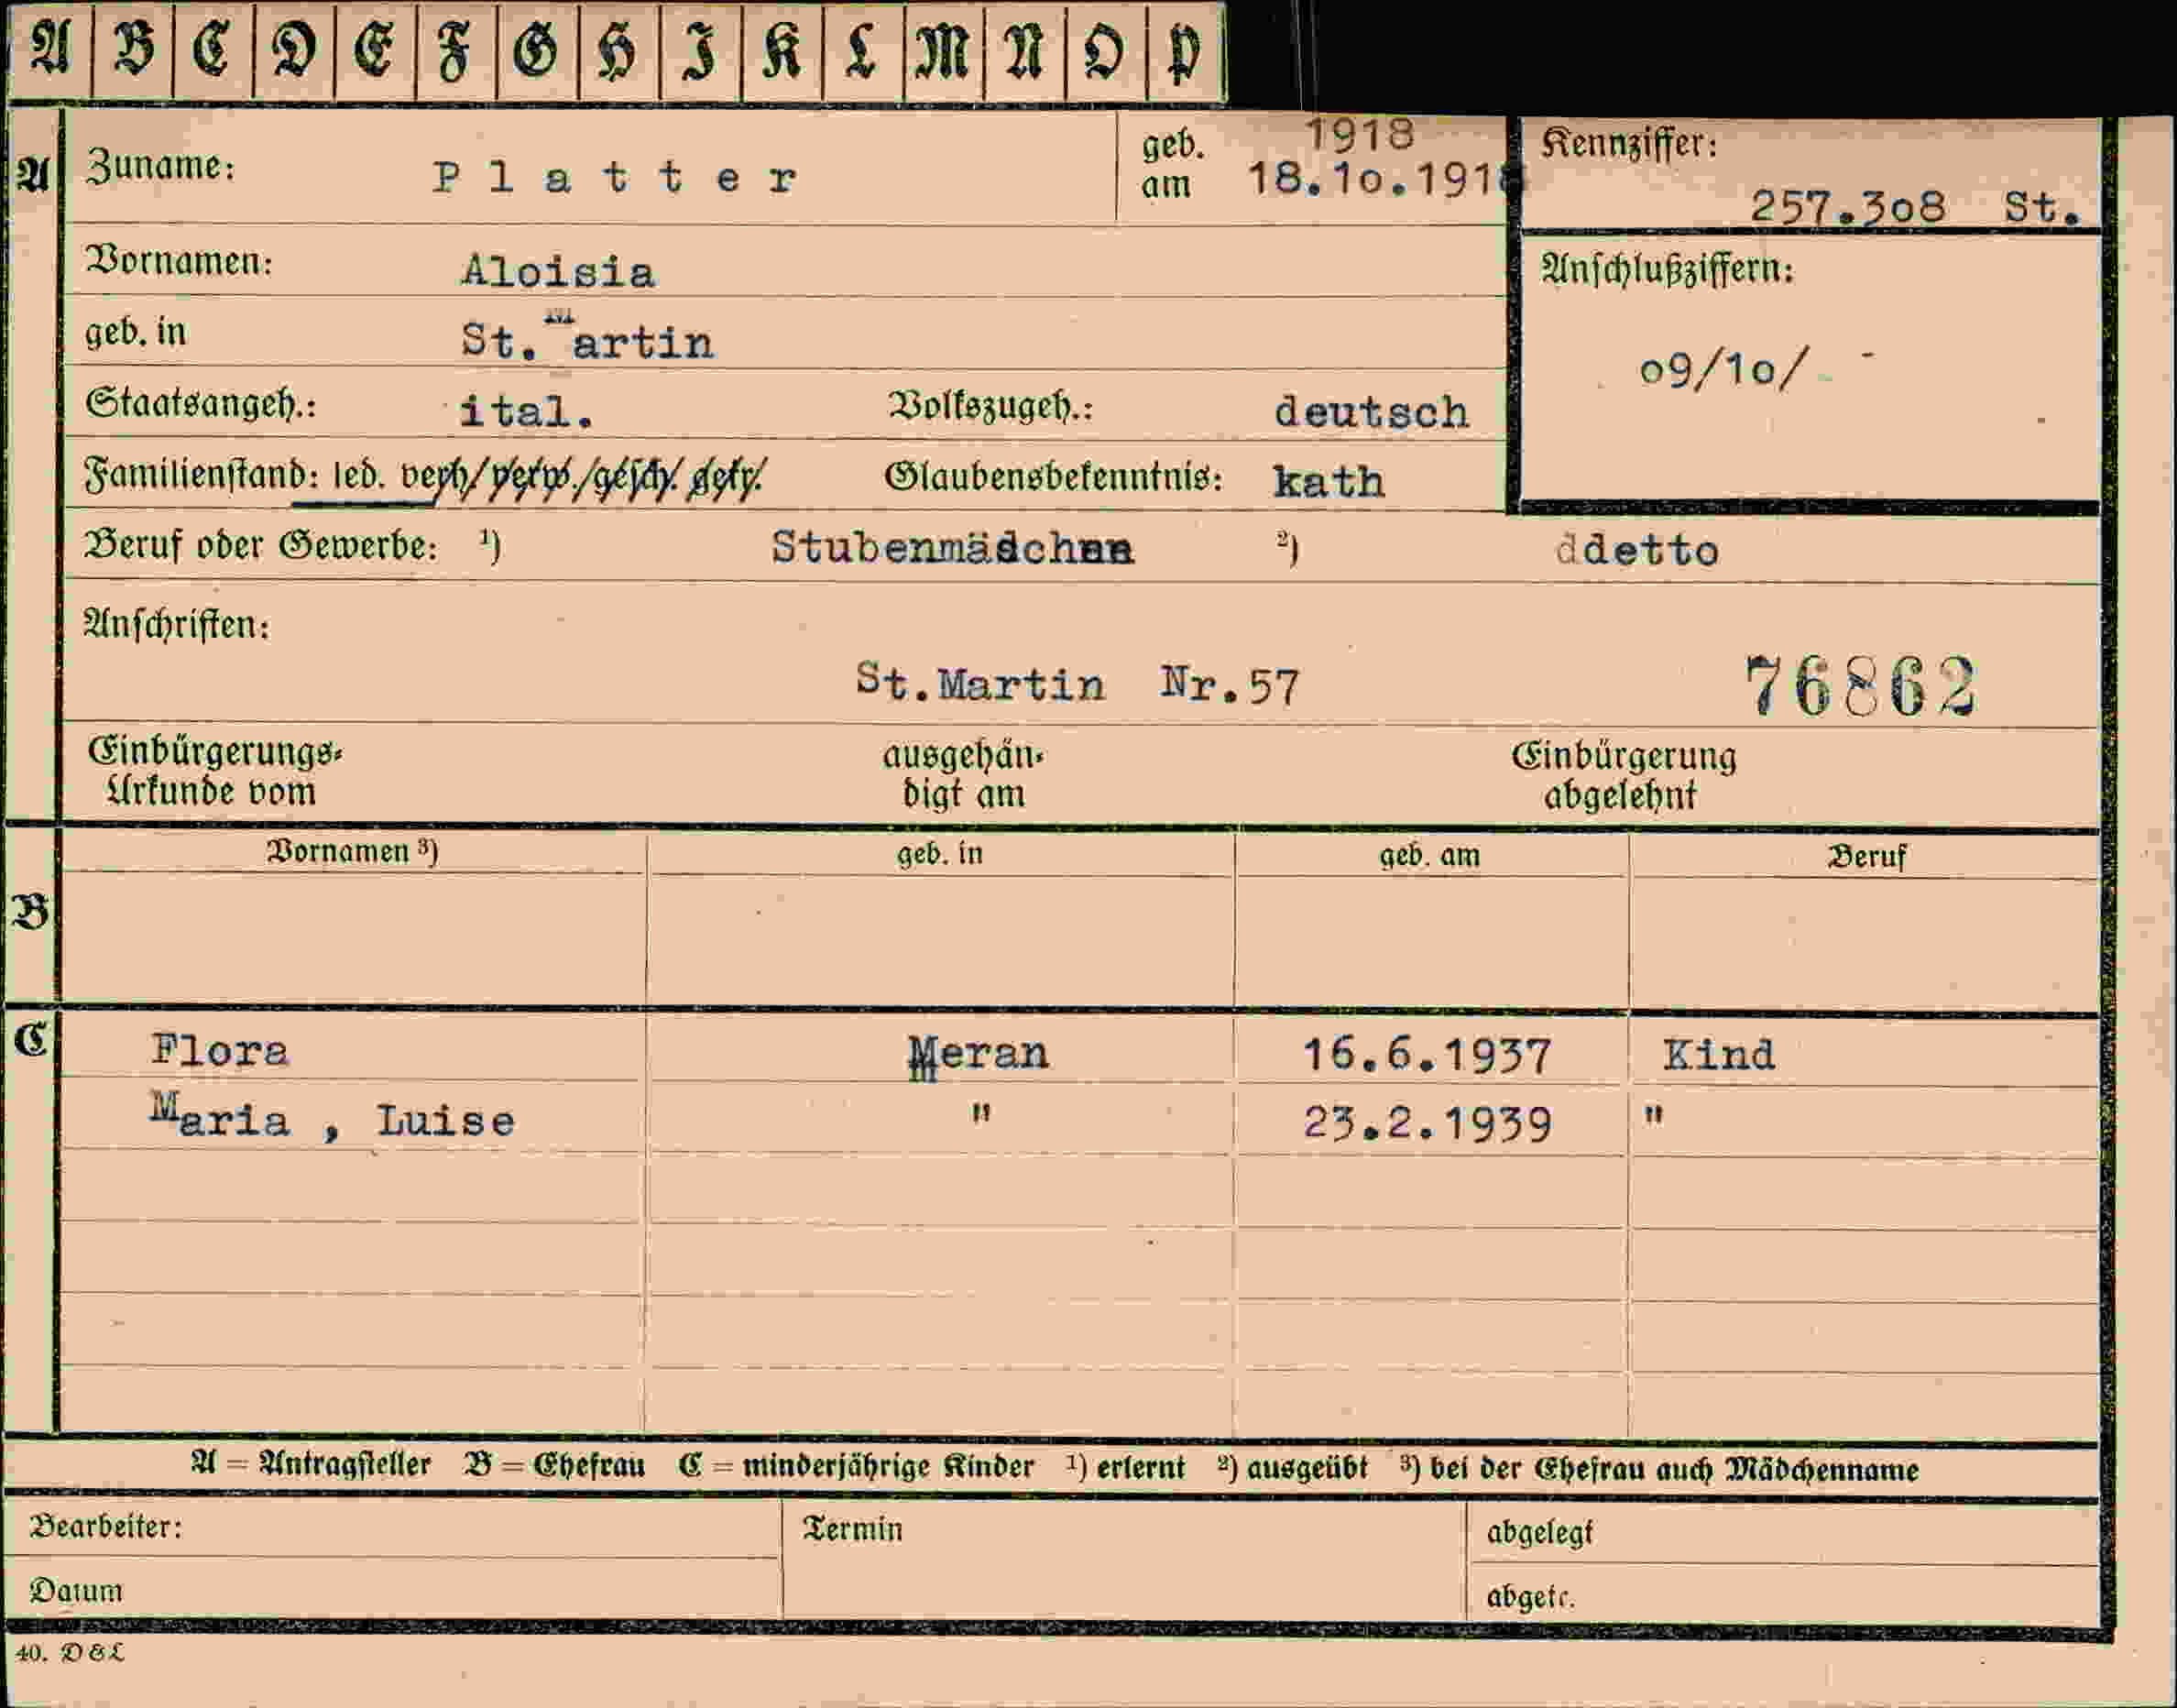 A B C D E F G H I K L M N O P
A Zuname: Platter geb. am 1918 18.10.1918 Kennziffer: 257.308 St.
Vornamen: Aloisia Anschlußziffern:
geb. in St. Martin 09/10/ -
Staatsangeh.: ital. Volkszugeh.: deutsch
Familienstand: led. verh/verw./gesch. getr. Glaubensbekenntnis: kath
Beruf oder Gewerbe: ¹) Stubenmädchen ²) ddetto
Anschriften:
St.Martin Nr.57 76862
Einbürgerungs- ausgehän- Einbürgerung
Urkunde vom digt am abgelehnt
Vornamen ³) geb. in geb. am Beruf
B
C Flora Meran 16.6.1937 Kind
Maria , Luise " 23.2.1939 "
A = Antragsteller B = Ehefrau C = minderjährige Kinder ¹) erlernt ²) ausgeübt ³) bei der Ehefrau auch Mädchenname
Bearbeiter: Termin abgelegt
Datum abgetr.
40. D & L